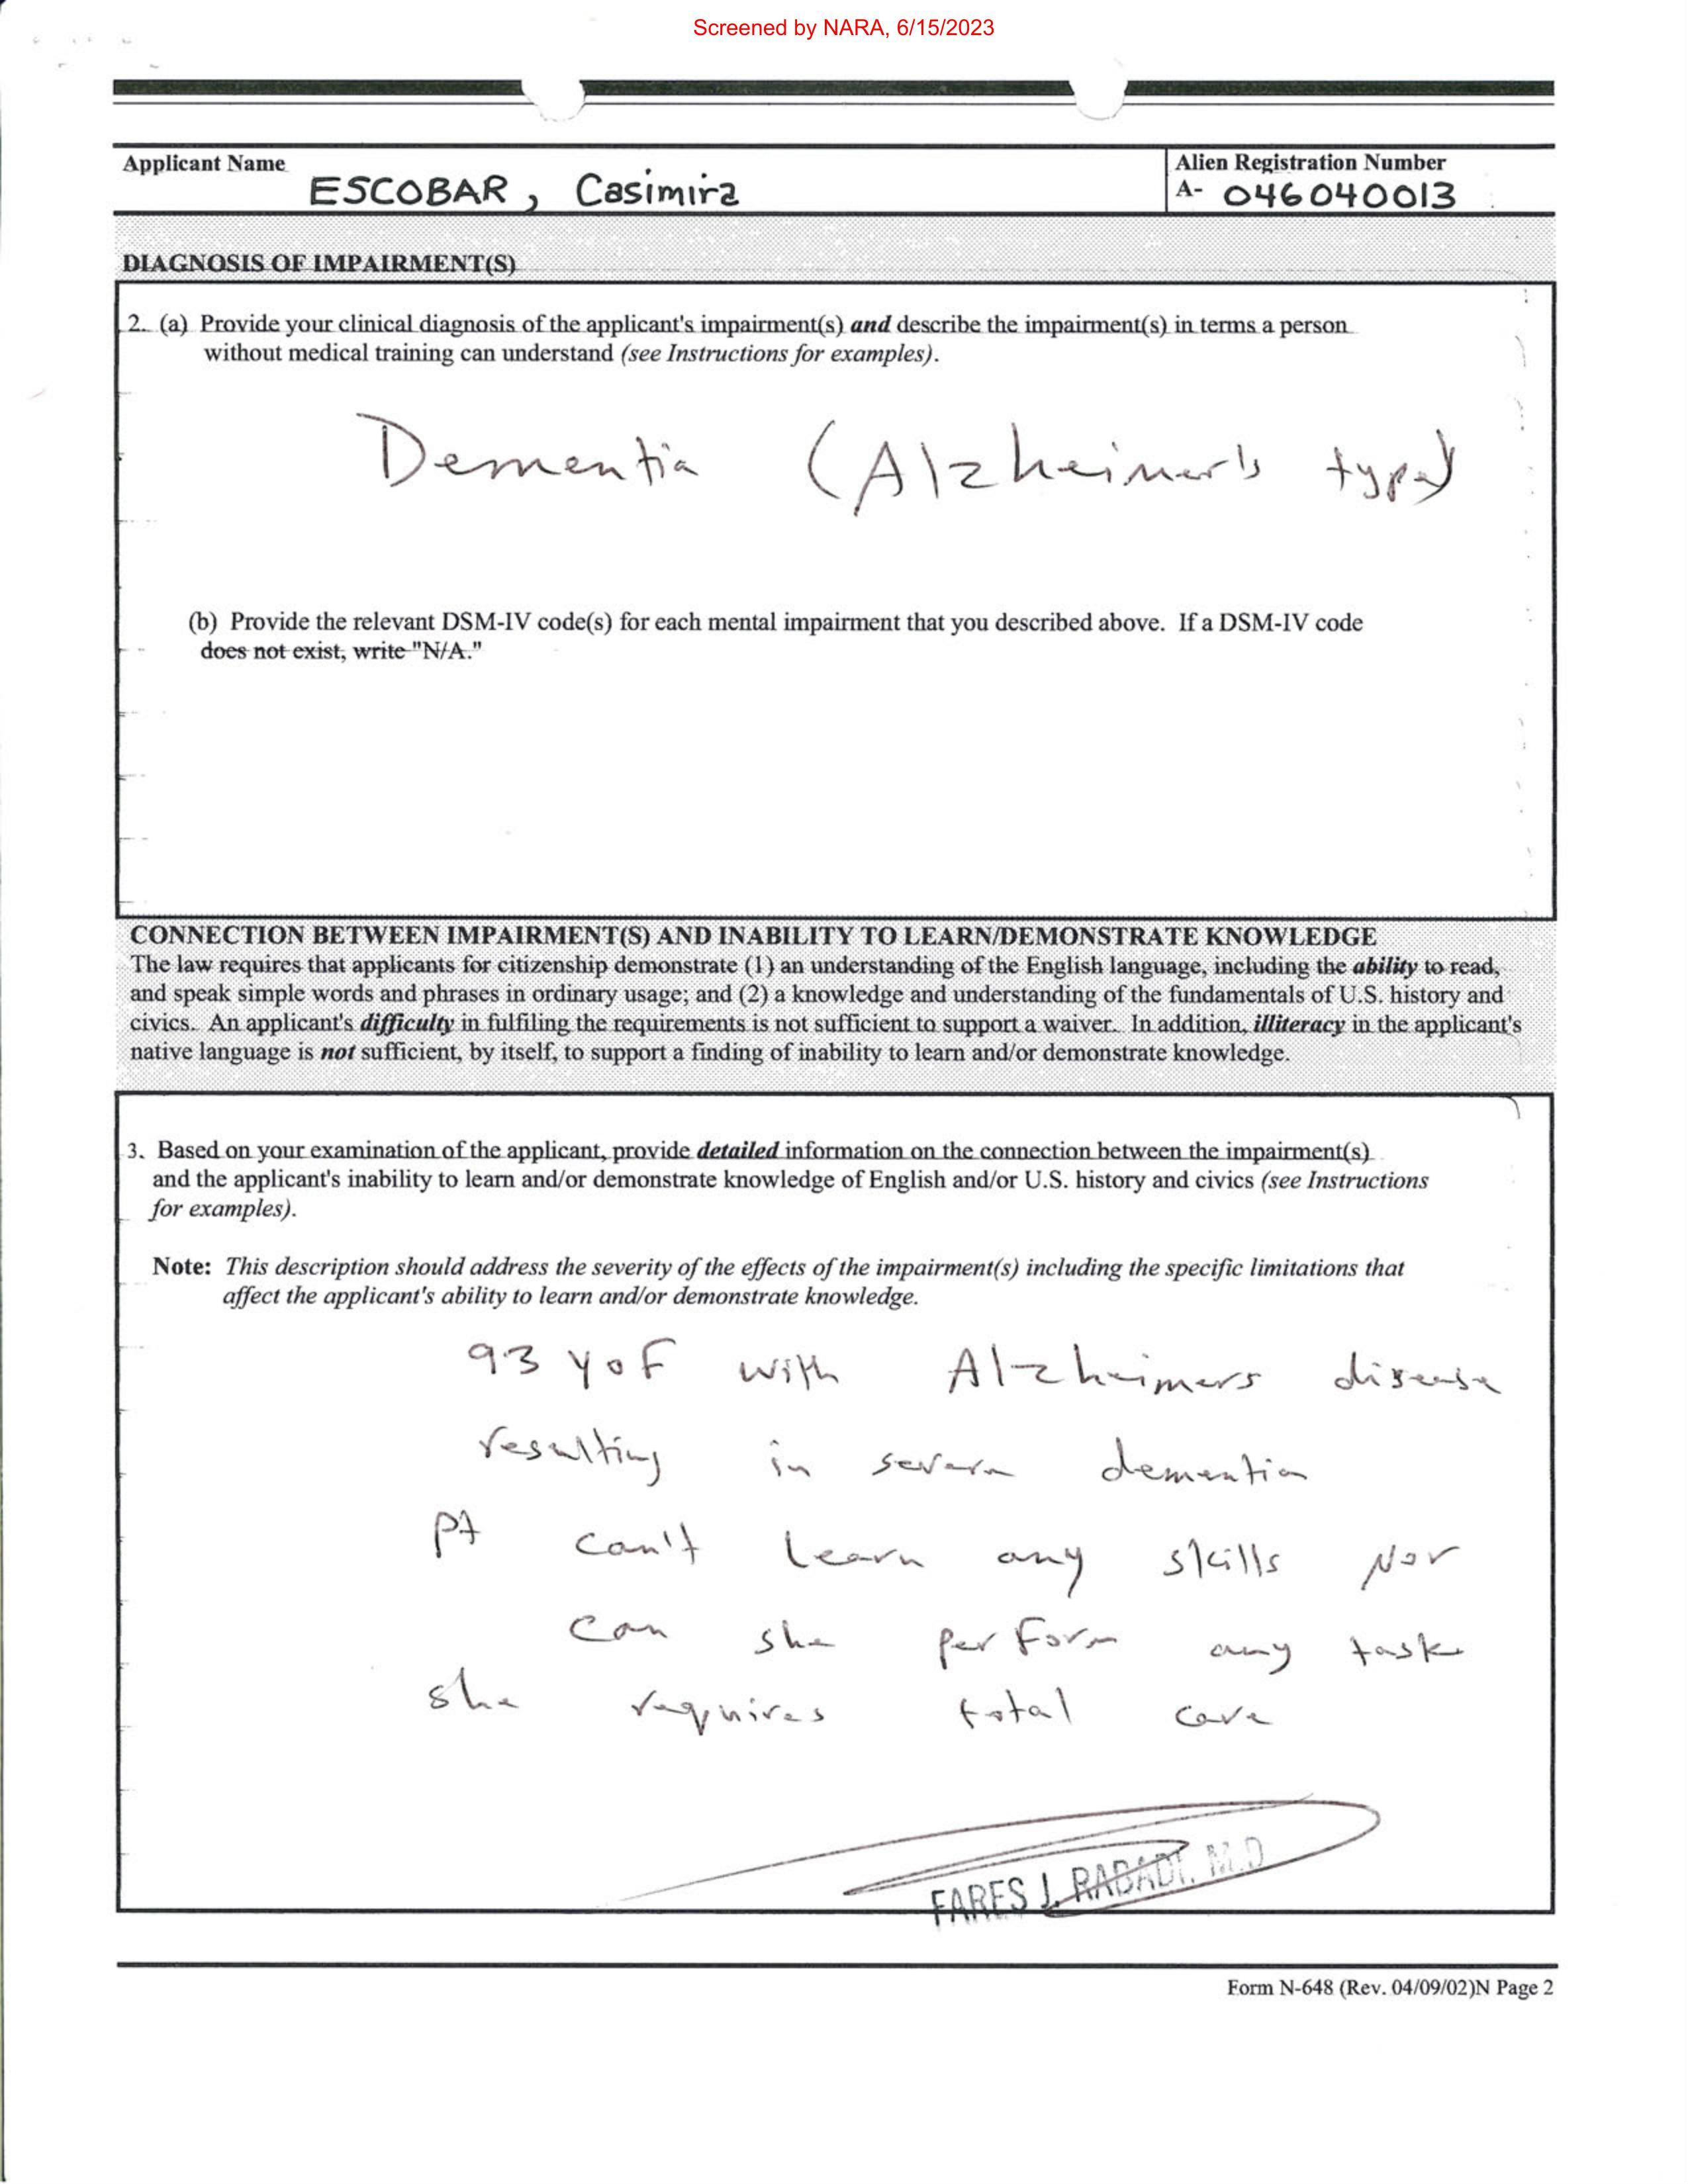 Screened by NARA, 6/15/2023
Applicant Name
ESCOBAR, Casimira
Alien Registration Number
A- 046040013
DIAGNOSIS OF IMPAIRMENT(S)
2. (a) Provide your clinical diagnosis of the applicant's impairment(s) and describe the impairment(s) in terms a person
without medical training can understand (see Instructions for examples).
Dementia (Alzheimer's type)
(b) Provide the relevant DSM-IV code(s) for each mental impairment that you described above. If a DSM-IV code
does not exist, write "N/A."
CONNECTION BETWEEN IMPAIRMENT(S) AND INABILITY TO LEARN/DEMONSTRATE KNOWLEDGE
The law requires that applicants for citizenship demonstrate (1) an understanding of the English language, including the ability to read,
and speak simple words and phrases in ordinary usage; and (2) a knowledge and understanding of the fundamentals of U.S. history and
civics. An applicant's difficulty in fulfiling the requirements is not sufficient to support a waiver. In addition, illiteracy in the applicant's
native language is not sufficient, by itself, to support a finding of inability to learn and/or demonstrate knowledge.
3. Based on your examination of the applicant, provide detailed information on the connection between the impairment(s)
and the applicant's inability to learn and/or demonstrate knowledge of English and/or U.S. history and civics (see Instructions
for examples).
Note: This description should address the severity of the effects of the impairment(s) including the specific limitations that
affect the applicant's ability to learn and/or demonstrate knowledge.
93 yoF with Alzheimers disease
resulting in severe dementia
Pt can't learn any skills Nor
can she perform any task
she requires total care
FARES J. RABADI, M.D
Form N-648 (Rev. 04/09/02)N Page 2